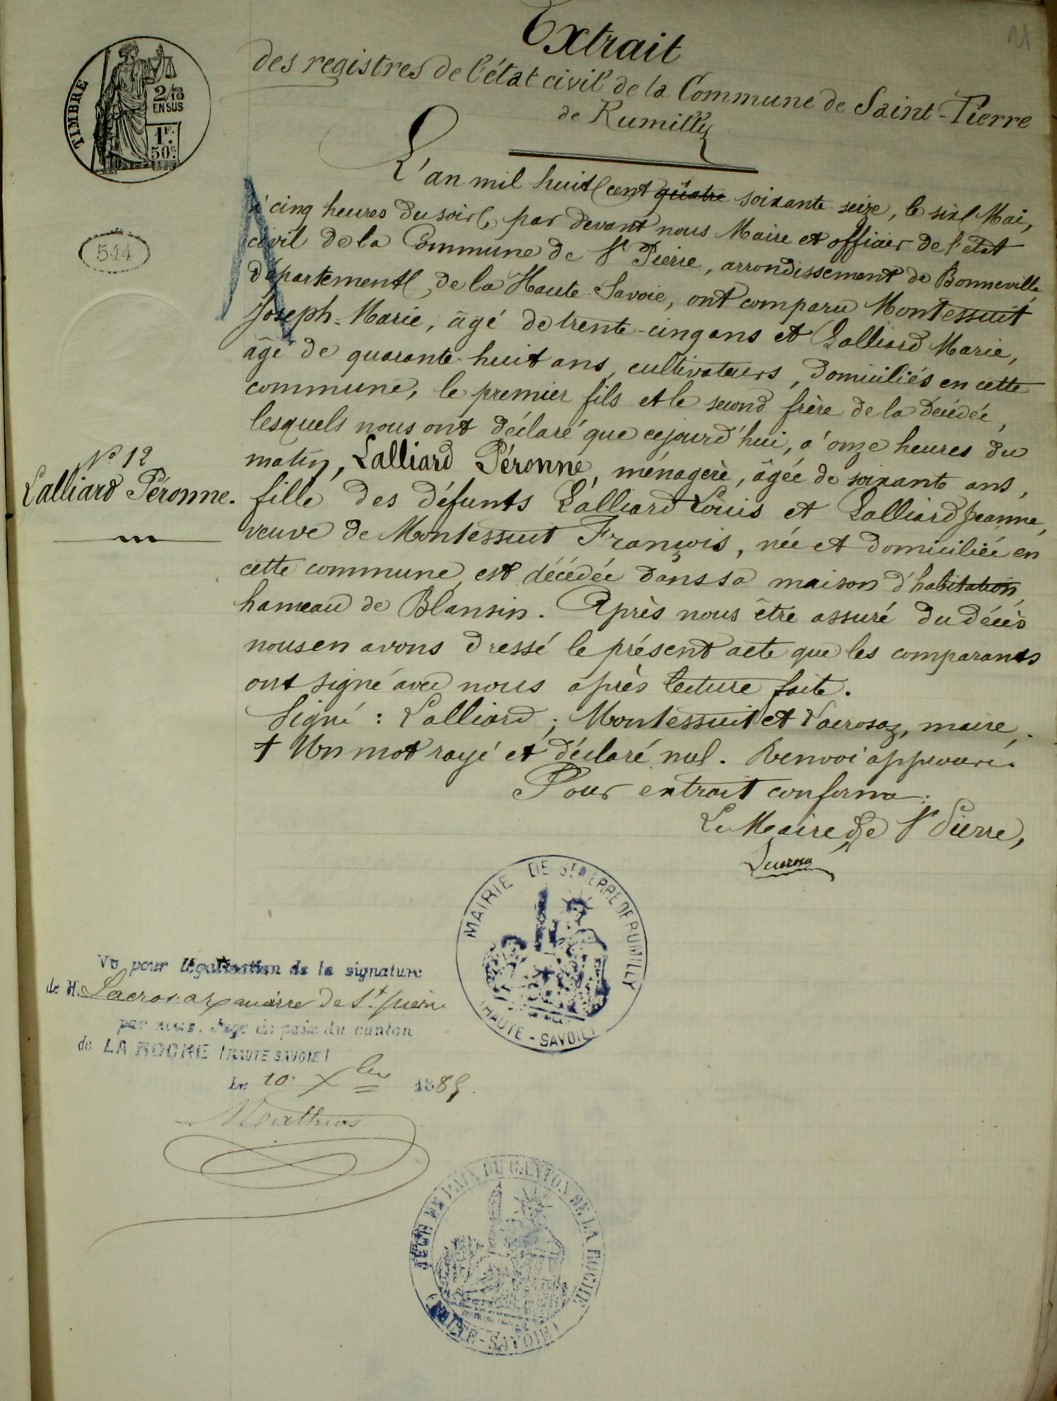 21
Extrait
des registres de l'état civil de la Commune de Saint-Pierre
de Rumilly
TIMBRE
2/10
EN SUS
1F.
50c.
L'an mil huit cent quatre soixante seize, le six Mai,
à cinq heures du soir, par devant nous Maire et officier de l'état
civil de la Commune de St Pierre, arrondissement de Bonneville
département de la Haute-Savoie, ont comparu Montessuit
Joseph-Marie, âgé de trente-cinq ans et Lalliard Marie,
âgé de quarante-huit ans, cultivateurs, domiciliés en cette
commune, le premier fils et le second frère de la décédée,
lesquels nous ont déclaré que cejourd'hui, à onze heures du
matin, Lalliard Péronne, ménagère, âgée de soixante ans,
fille des défunts Lalliard Louis et Lalliard Jeanne,
veuve de Montessuit François, née et domiciliée en
cette commune, est décédée dans sa maison d'habitation,
hameau de Blansin. Après nous être assuré du décès
nous en avons dressé le présent acte que les comparants
ont signé avec nous après lecture faite.
Signé : Lalliard ; Montessuit et Lacrosaz, maire.
+ Un mot rayé et déclaré nul. Renvoi approuvé.
Pour extrait conforme :
Le Maire de St Pierre,
544
N° 12
Lalliard Péronne.
MAIRIE DE ST PIERRE DE RUMILLY
(HAUTE-SAVOIE)
Vu pour légalisation de la signature
de M. Lacrosaz maire de St Pierre
par nous, Juge de paix du canton
de LA ROCHE (HAUTE SAVOIE)
Le 10 Xbre 1885.
JUGE DE PAIX DU CANTON DE LA ROCHE
(HAUTE-SAVOIE)